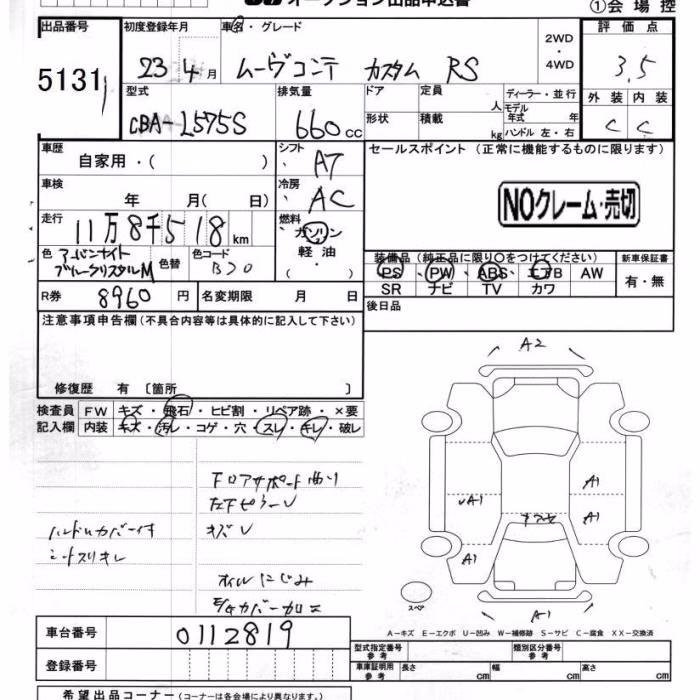 オークション出品申込書
①会場控
出品番号
5131
初度登録年月
23 4 月
車名・グレード
ムーヴコンテ カスタム RS
2WD
・
4WD
評価点
3.5
外装 内装
C C
型式
CBA-L575S
排気量
660 CC
ドア
定員
人
形状
積載
kg
ディーラー・並行
モデル
年式 年
ハンドル 左・右
車歴
自家用・( )
シフト
AT
セールスポイント (正常に機能するものに限ります)
車検
年 月( 日)
冷房
AC
NOクレーム・売切
走行
11万8千518 km
燃料
ガソリン
軽油
( )
色
アーバンナイト
ブルークリスタルM
色替
色コード
B30
装備品 (純正品に限り○をつけてください)
PS PW ABS エアB AW
SR ナビ TV カワ
新車保証書
有・無
R券
8960 円
名変期限 月 日
後日品
注意事項申告欄 (不具合内容等は具体的に記入して下さい)
修復歴 有 〔箇所 〕
検査員
記入欄
FW キズ・飛石・ヒビ割・リペア跡・×要
内装 キズ・汚レ・コゲ・穴・スレ・キレ・破レ
下回アサポート曲り
左下ピラーU
キズU
ハンドルカバー付
シートスリキレ
オイルにじみ
A2
A1
A1
UA1
A1
A1
スペア
A-キズ E-エクボ U-凹み W-補修跡 S-サビ C-腐食 XX-交換済
車台番号
0112819
登録番号
型式指定番号
参考
類別区分番号
参考
車庫証明用
参考
長さ cm
幅 cm
高さ cm
希望出品コーナー (コーナーは各会場により異なります。)